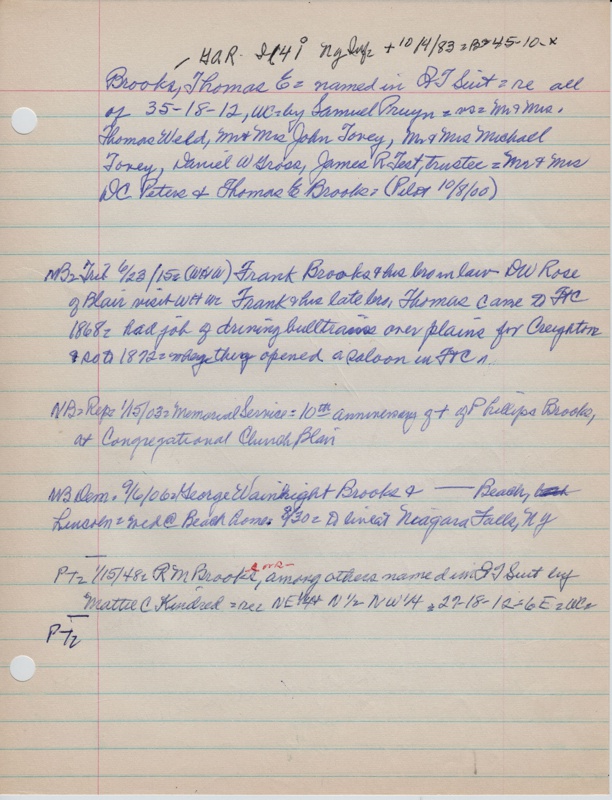 GAR. I 141 Ny Inf = + 10/4/83 = B = 45-10-x
Brooks, Thomas E = named in QT Suit = re all
of 35-18-12, WC = by Samuel Pruyn = vs = Mr & Mrs.
Thomas Weld, Mr & Mrs John Tovey, Mr & Mrs Michael
Tovey, Daniel W Gross, James R Test, trustee = Mr & Mrs
DC Peters & Thomas E Brooks = (Pilot 10/8/00)
NB = Trib 6/23/15 = (WHW) Frank Brooks & his bro in law DW Rose
of Blair visit WHW Frank & his late bro, Thomas came to FtC
1868 = had job of driving bullteams over plains for Creighton
& so to 1872 = when they opened a saloon in FtC
NB = Rep = 1/15/03 = Memorial Service = 10th anniversary of + of Phillips Brooks,
at Congregational Church, Blair
NB Dem. 9/6/06 = George Wainwright Brooks & — Beach,
Lincoln = wed @ Beach home 8/30 = to live at Niagara Falls, NY
PT = 1/15/48 = R M Brooks, among others named in QT Suit by
Mattie C Kindred = re NE 1/4 + N 1/2 NW 1/4 = 27-18-12 = 6 E = WC =
PT =